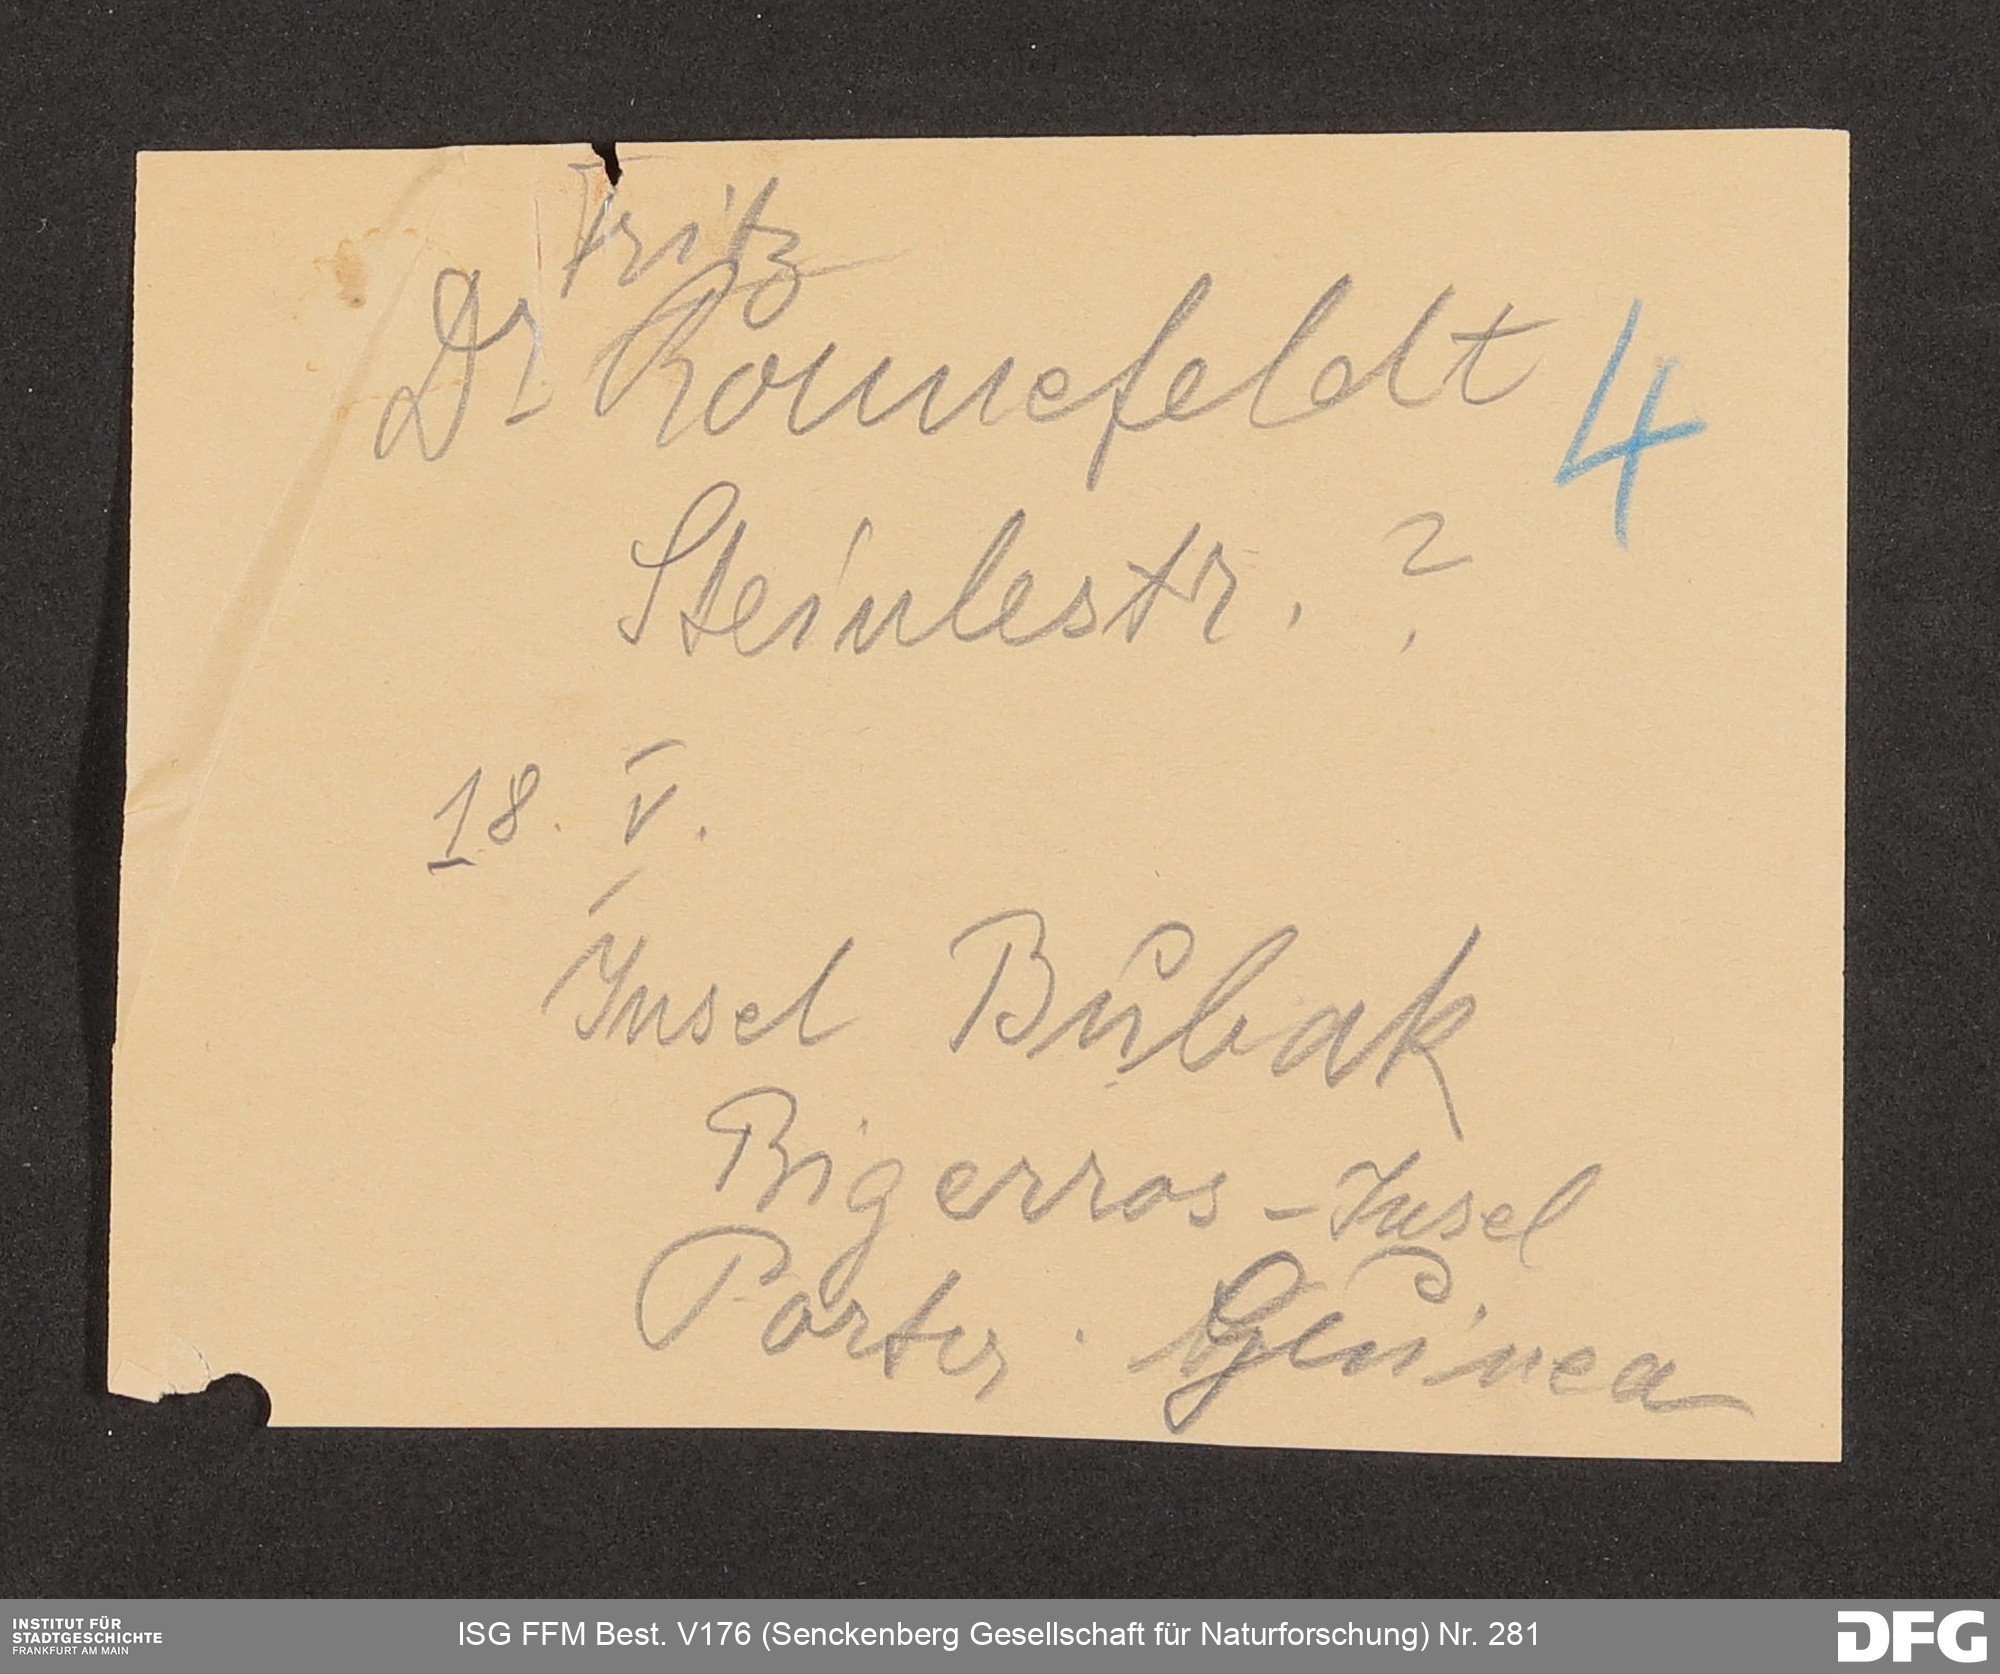 Fritz
Dr Ronnefeldt 4
Steinlestr. ?
18. V.
Insel Bubak
Bigerros-Insel
Portug. Guinea
INSTITUT FÜR
STADTGESCHICHTE
FRANKFURT AM MAIN
ISG FFM Best. V176 (Senckenberg Gesellschaft für Naturforschung) Nr. 281
DFG